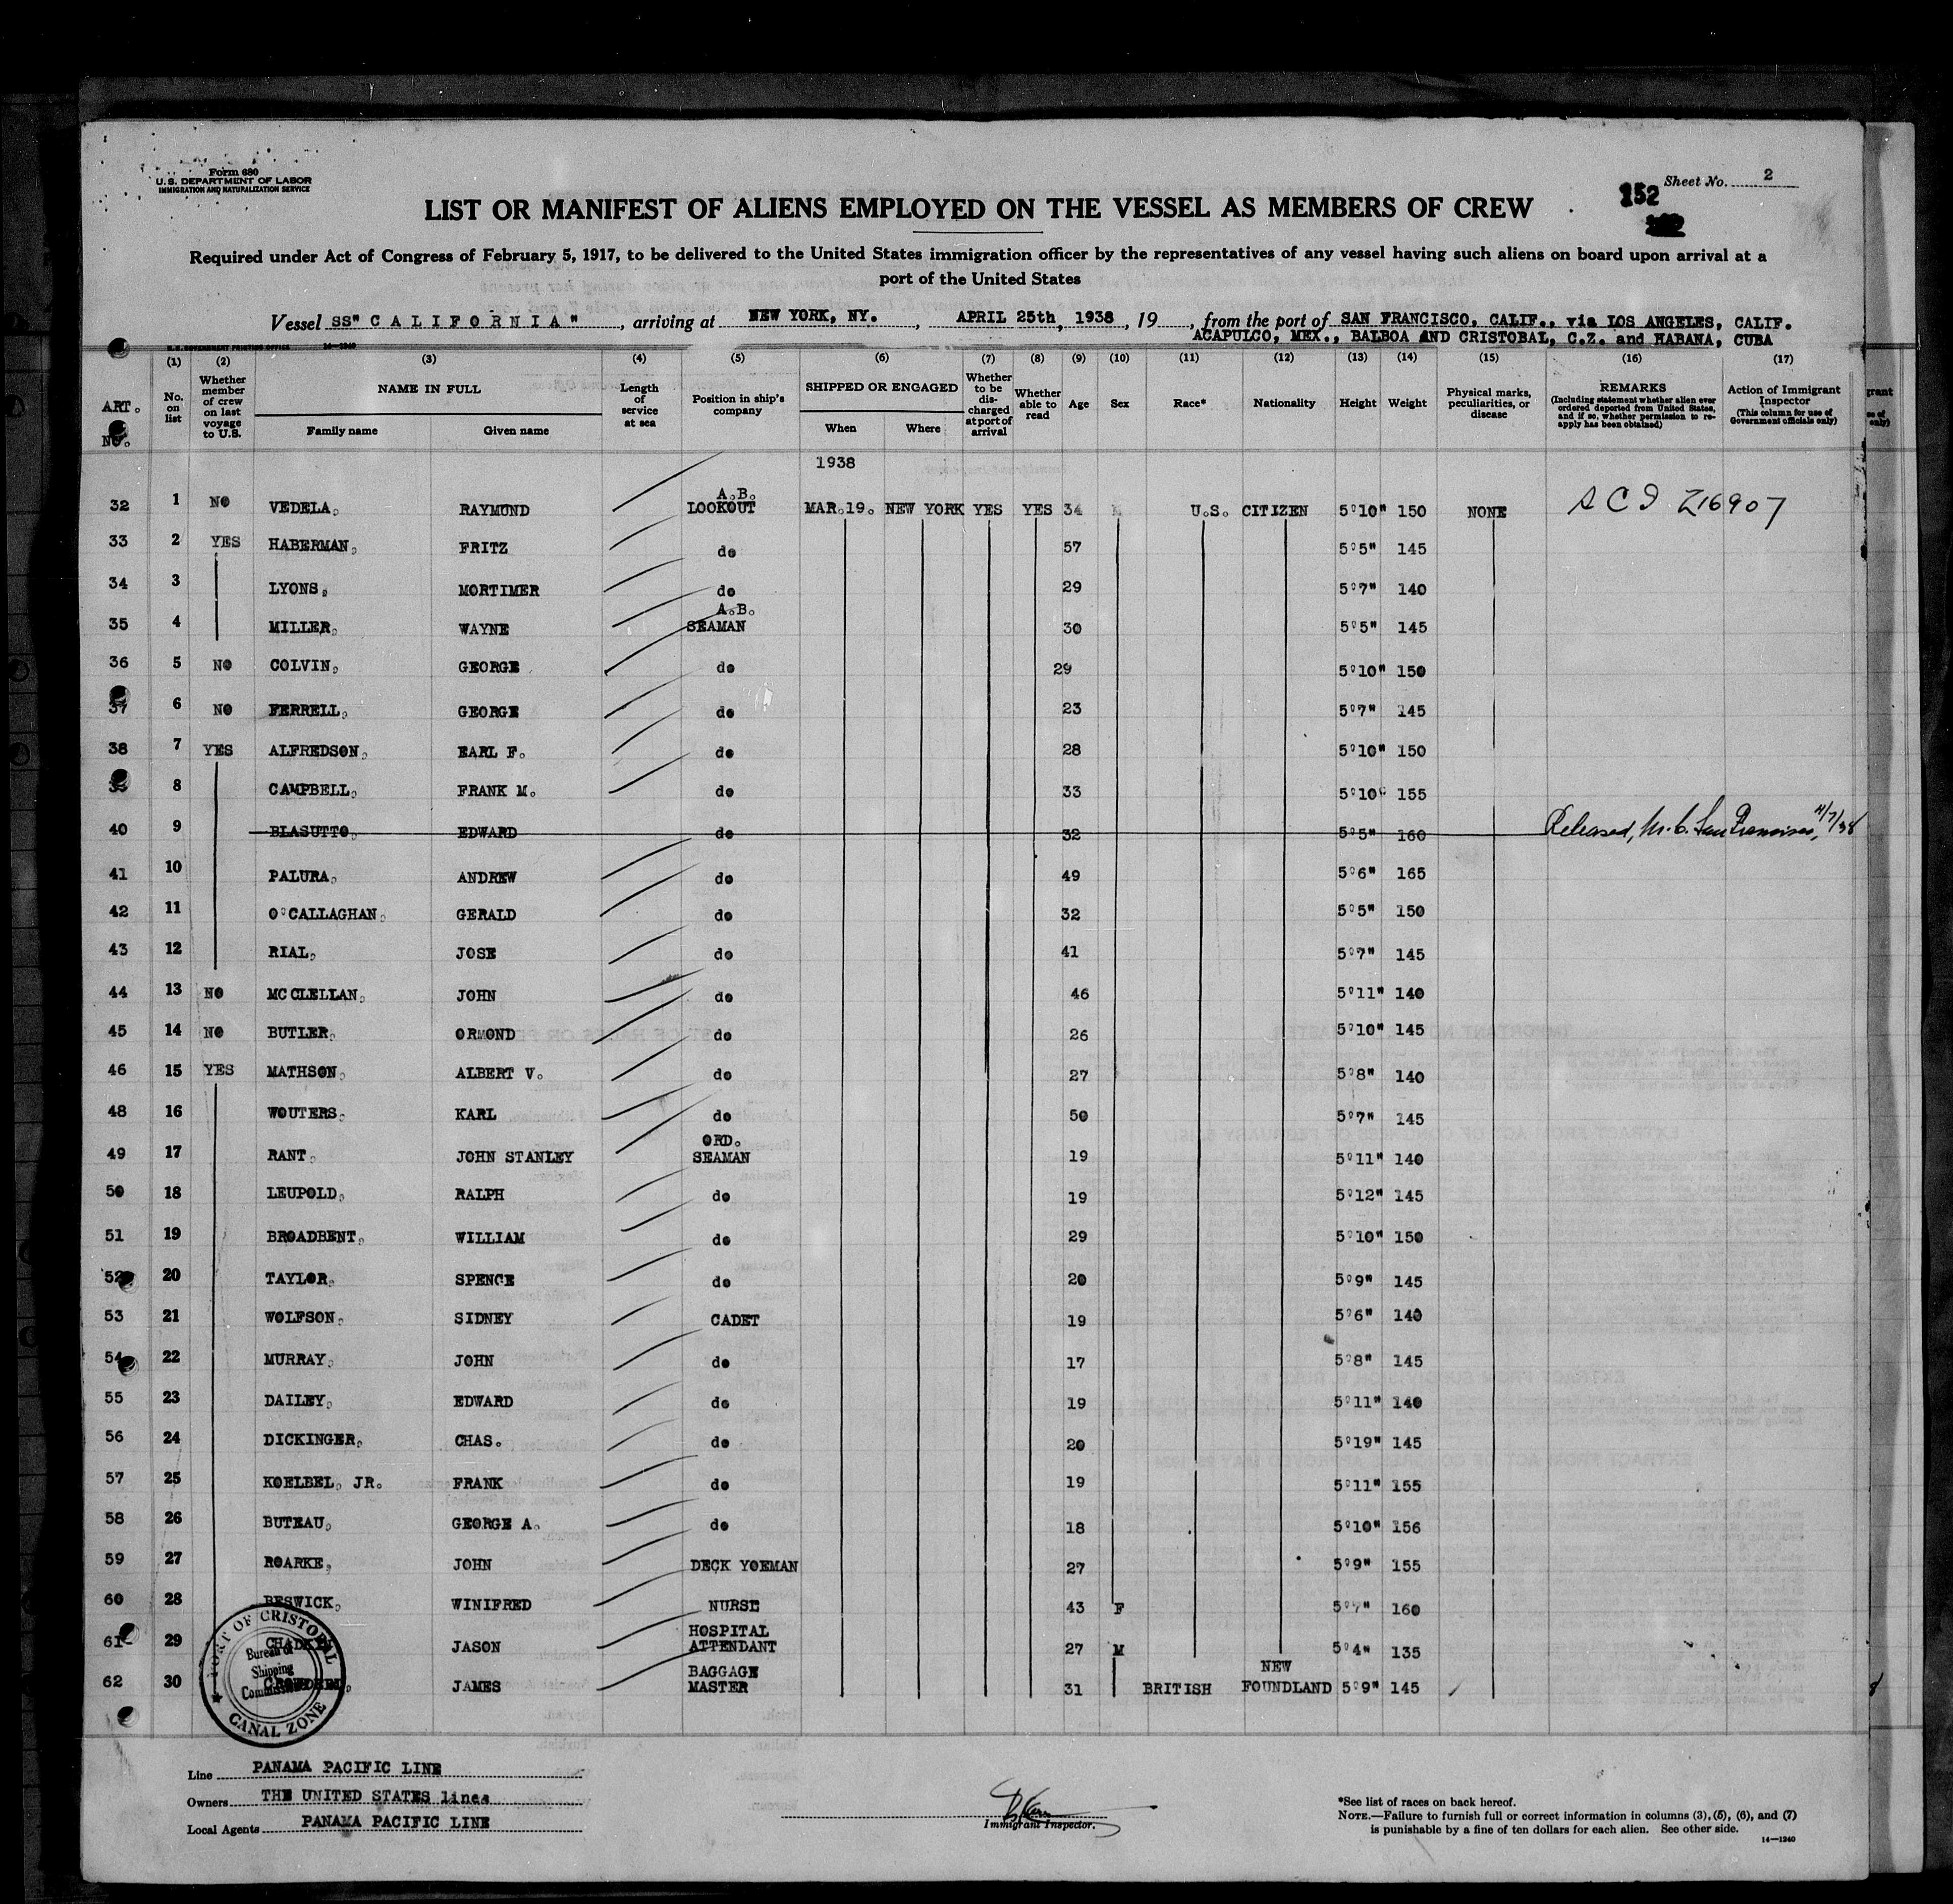 Form 680
U.S. DEPARTMENT OF LABOR
IMMIGRATION AND NATURALIZATION SERVICE
Sheet No. 2
152
LIST OR MANIFEST OF ALIENS EMPLOYED ON THE VESSEL AS MEMBERS OF CREW
Required under Act of Congress of February 5, 1917, to be delivered to the United States immigration officer by the representatives of any vessel having such aliens on board upon arrival at a
port of the United States
Vessel SS" C A L I F O R N I A ", arriving at NEW YORK, NY., APRIL 25th, 1938, 19, from the port of SAN FRANCISCO, CALIF., via LOS ANGELES, CALIF.
ACAPULCO, MEX., BALBOA AND CRISTOBAL, C.Z. and HABANA, CUBA
U.S. GOVERNMENT PRINTING OFFICE 14—1240
(1) (2) (3) (4) (5) (6) (7) (8) (9) (10) (11) (12) (13) (14) (15) (16) (17)
ART. NO.
No. on list
Whether member of crew on last voyage to U.S.
NAME IN FULL
Family name Given name
Length of service at sea
Position in ship's company
SHIPPED OR ENGAGED
When Where
Whether to be discharged at port of arrival
Whether able to read
Age
Sex
Race*
Nationality
Height
Weight
Physical marks, peculiarities, or disease
REMARKS
(Including statement whether alien ever ordered deported from United States, and if so, whether permission to reapply has been obtained)
Action of Immigrant Inspector
(This column for use of Government officials only)
1938
32 1 NO VEDELA, RAYMUND A.B. LOOKOUT MAR.19. NEW YORK YES YES 34 U.S. CITIZEN 5'10" 150 NONE
33 2 YES HABERMAN, FRITZ do 57 5'5" 145
34 3 LYONS, MORTIMER do 29 5'7" 140
35 4 MILLER, WAYNE A.B. SEAMAN 30 5'5" 145
36 5 NO COLVIN, GEORGE do 29 5'10" 150
37 6 NO FERRELL, GEORGE do 23 5'7" 145
38 7 YES ALFREDSON, EARL F. do 28 5'10" 150
39 8 CAMPBELL, FRANK M. do 33 5'10" 155
40 9 BLASUTTO, EDWARD do 32 5'5" 160 Released, M.C. San Francisco, 4/7/38
41 10 PALURA, ANDREW do 49 5'6" 165
42 11 O'CALLAGHAN, GERALD do 32 5'5" 150
43 12 RIAL, JOSE do 41 5'7" 145
44 13 NO MC CLELLAN, JOHN do 46 5'11" 140
45 14 NO BUTLER, ORMOND do 26 5'10" 145
46 15 YES MATHSON, ALBERT V. do 27 5'8" 140
48 16 WOUTERS, KARL do 50 5'7" 145
49 17 RANT, JOHN STANLEY ORD. SEAMAN 19 5'11" 140
50 18 LEUPOLD, RALPH do 19 5'12" 145
51 19 BROADBENT, WILLIAM do 29 5'10" 150
52 20 TAYLOR, SPENCE do 20 5'9" 145
53 21 WOLFSON, SIDNEY CADET 19 5'6" 140
54 22 MURRAY, JOHN do 17 5'8" 145
55 23 DAILEY, EDWARD do 19 5'11" 140
56 24 DICKINGER, CHAS. do 20 5'19" 145
57 25 KOELBEL, JR. FRANK do 19 5'11" 155
58 26 BUTEAU, GEORGE A. do 18 5'10" 156
59 27 ROARKE, JOHN DECK YOEMAN 27 5'9" 155
60 28 BESWICK, WINIFRED NURSE 43 F 5'7" 160
61 29 JASON HOSPITAL ATTENDANT 27 M 5'4" 135
62 30 JAMES BAGGAGE MASTER 31 BRITISH NEW FOUNDLAND 5'9" 145
PORT OF CRISTOBAL
Bureau of
Shipping
CANAL ZONE
Line PANAMA PACIFIC LINE
Owners THE UNITED STATES lines
Local Agents PANAMA PACIFIC LINE
Immigrant Inspector.
*See list of races on back hereof.
NOTE.—Failure to furnish full or correct information in columns (3), (5), (6), and (7)
is punishable by a fine of ten dollars for each alien. See other side.
14—1240